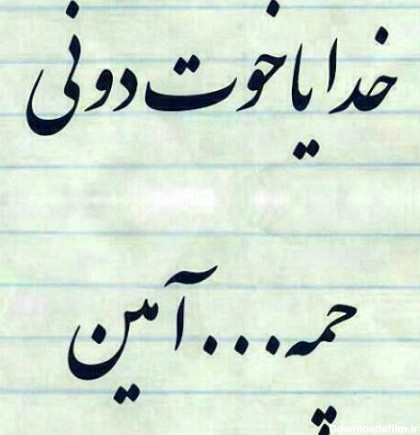 خدایا خوت دونی
چمه...آمین
downloadefilm.ir